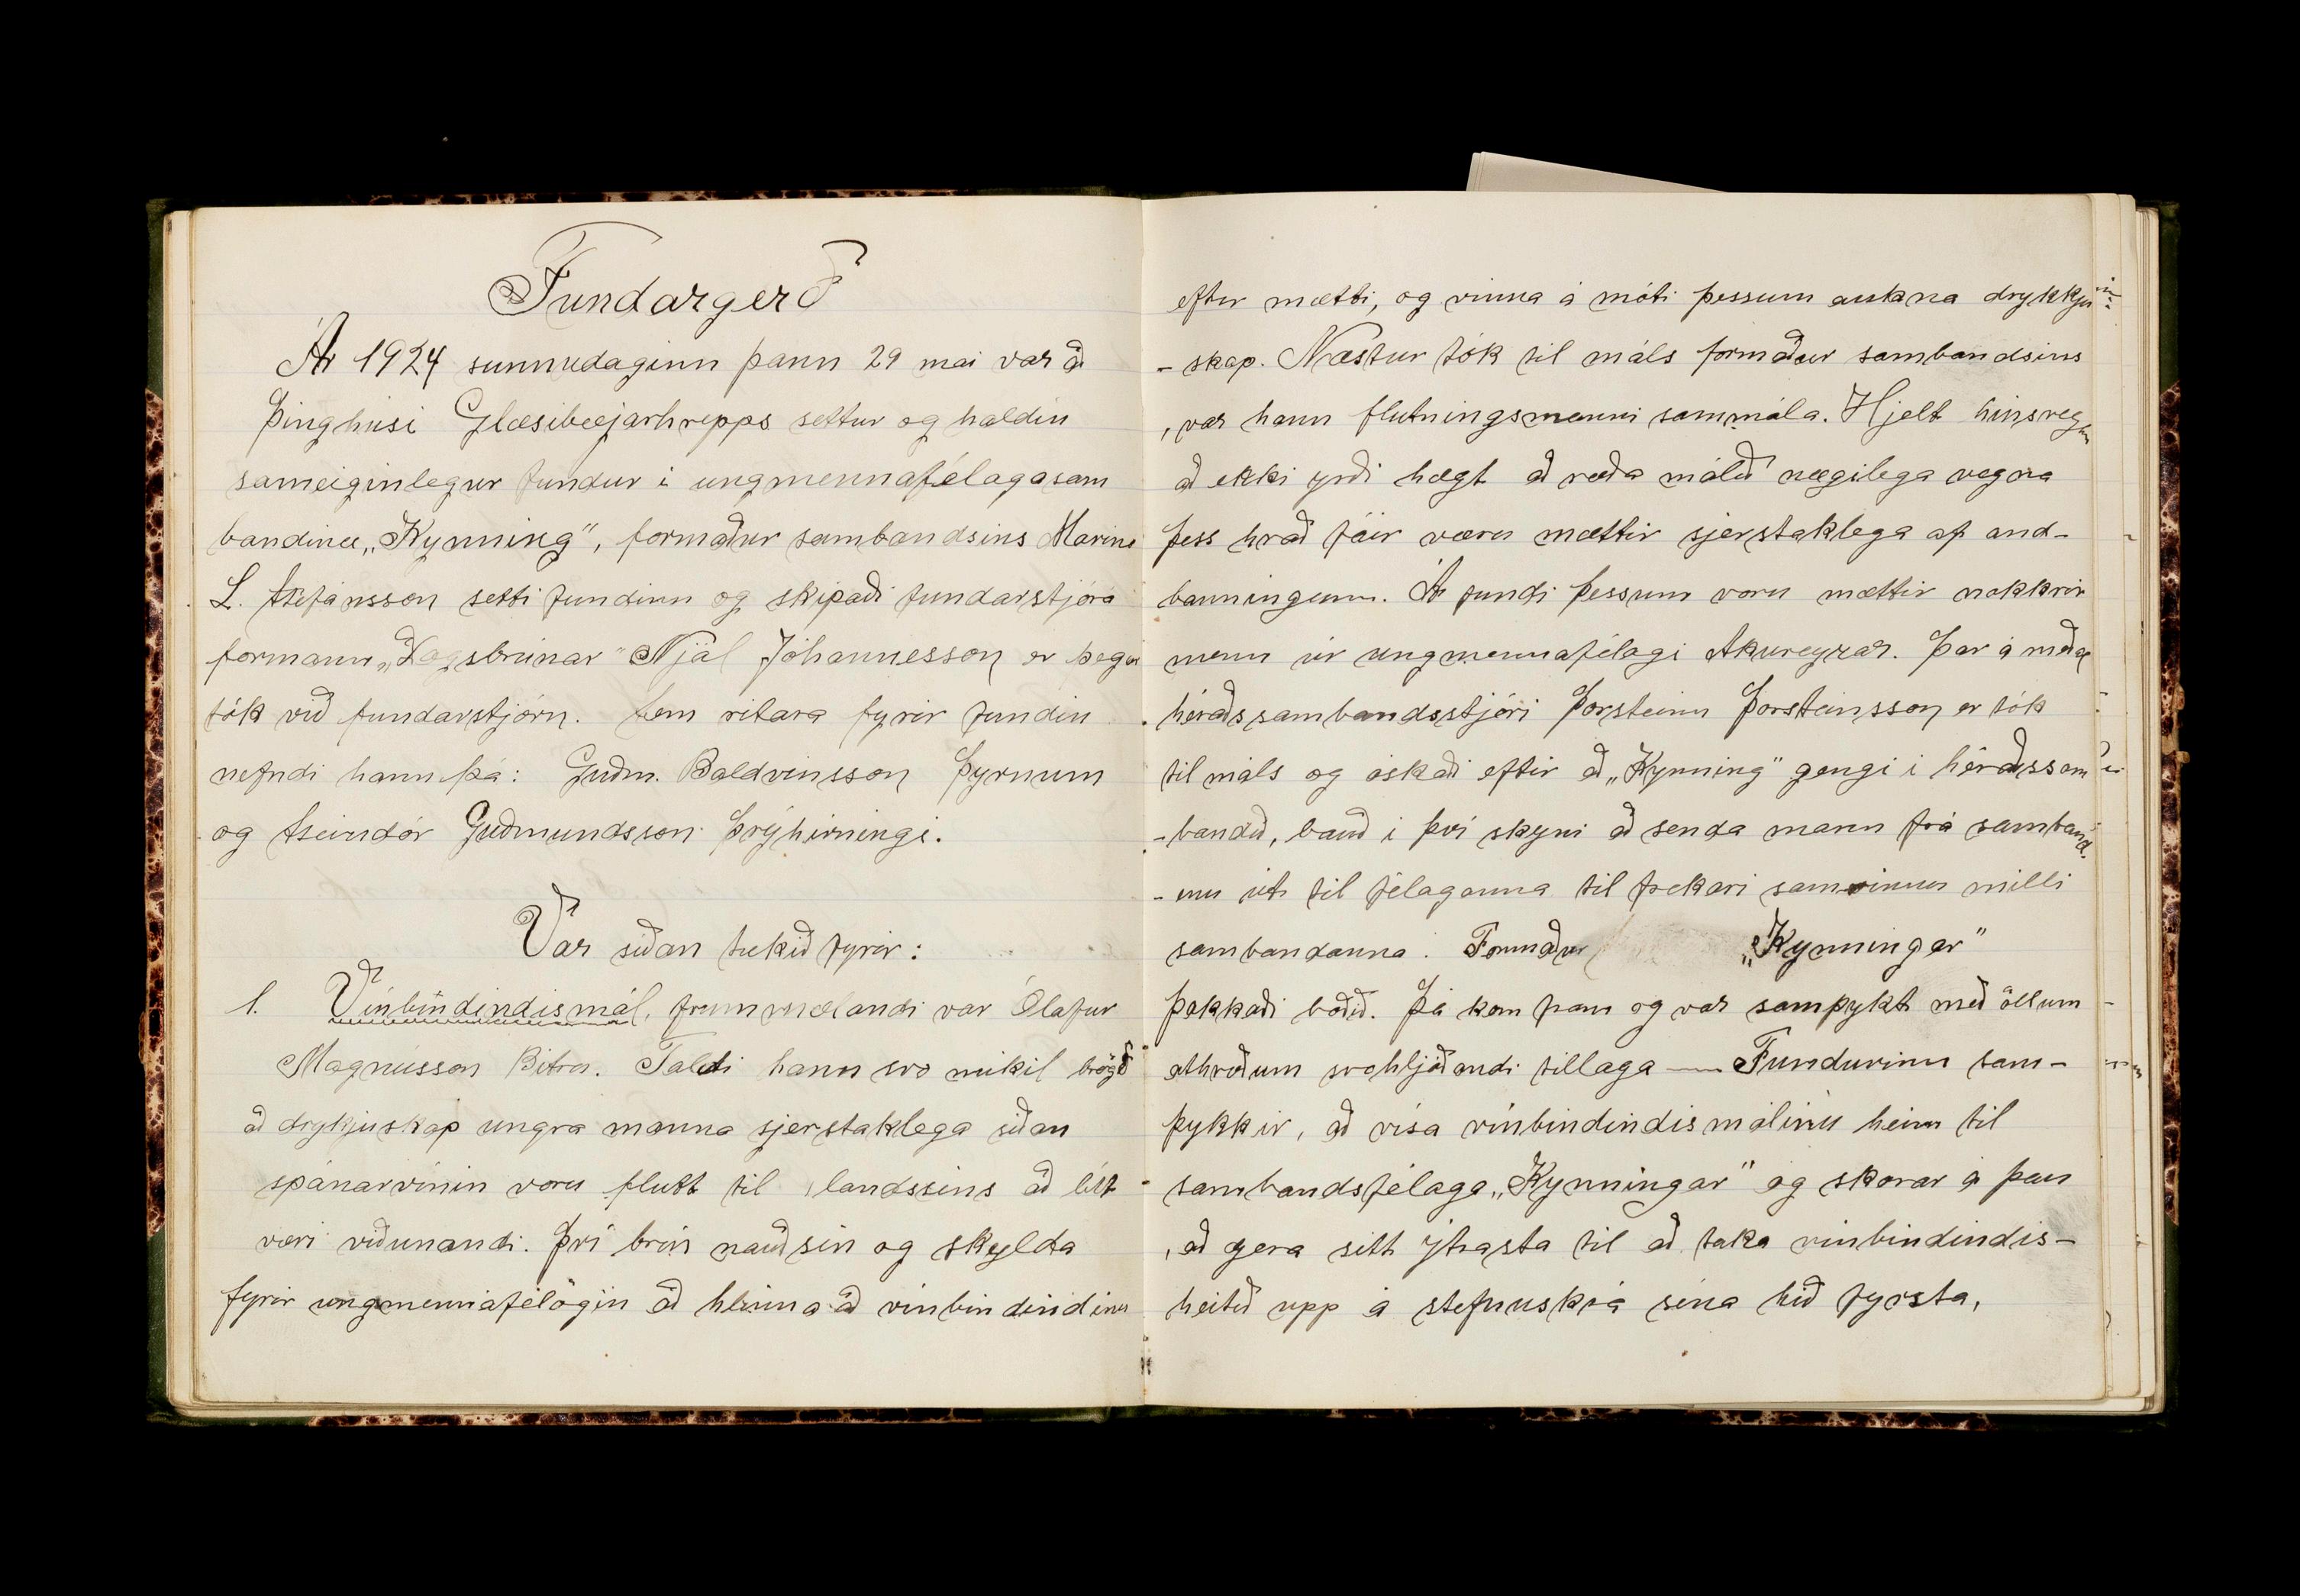 Fundargerð
Ár 1924 sunnudaginn þann 29 mai var að
Þinghúsi Glæsibæjarhrepps settur og haldin
sameiginlegur fundur i ungmennafélagasam
bandinu „Kynning", formaður sambandsins Marino
L. Stefánsson setti fundinn og skipaði fundarstjóra
formann „Dagsbrúnar" Njál Jóhannesson er þegar
tók við fundarstjórn. Sem ritara fyrir fundin
nefndi hann þá: Guðm. Baldvinsson Þyrnum
og Steindór Guðmundsson Þrýhirningi.
Var siðan tekið fyrir:
1. Vínbindindismál, frummælandi var Ólafur
Magnússon Bitru. Taldi hann svo mikil brögð
að drykjuskap ungra manna sjerstaklega siðan
spánarvínin voru flutt til landssins að litt
væri viðunandi. Því brín nauðsin og skylda
fyrir ungmennafélögin að hlinna að vinbindindinu
eftir mætti, og vinna á móti þessum aukna drykkju
- skap. Næstur tók til máls formaður sambandsins
, var hann flutningsmanni sammála. Hjelt hinsvegar
að ekki yrði hægt að ræða málið nægilega vegna
þess hvað fáir væru mættir sjerstaklega af and-
banningum. Á fundi þessum voru mættir nokkrir
menn úr ungmennafélagi Akureyrar. Þar á meðal
héraðssambandsstjóri Þorsteinn Þorsteinsson er tók
til máls og óskaði eftir að „Kynning" gengi i héraðssam
- bandið, bauð i því skyni að senda mann frá samband
- inu út til félaganna til frekari samvinnu milli
sambandanna. Formaður „Kynningar"
þakkaði boðið. Þá kom fram og var samþykt með öllum
athvæðum svohljóðandi tillaga — Fundurinn sam-
þykkir, að vísa vínbindindismálinu heim til
sambandsfélaga „Kynningar" og skorar á þau
, að gera sitt ýtrasta til að taka vinbindindis-
heitið upp á stefnuskrá sína hið fyrsta,